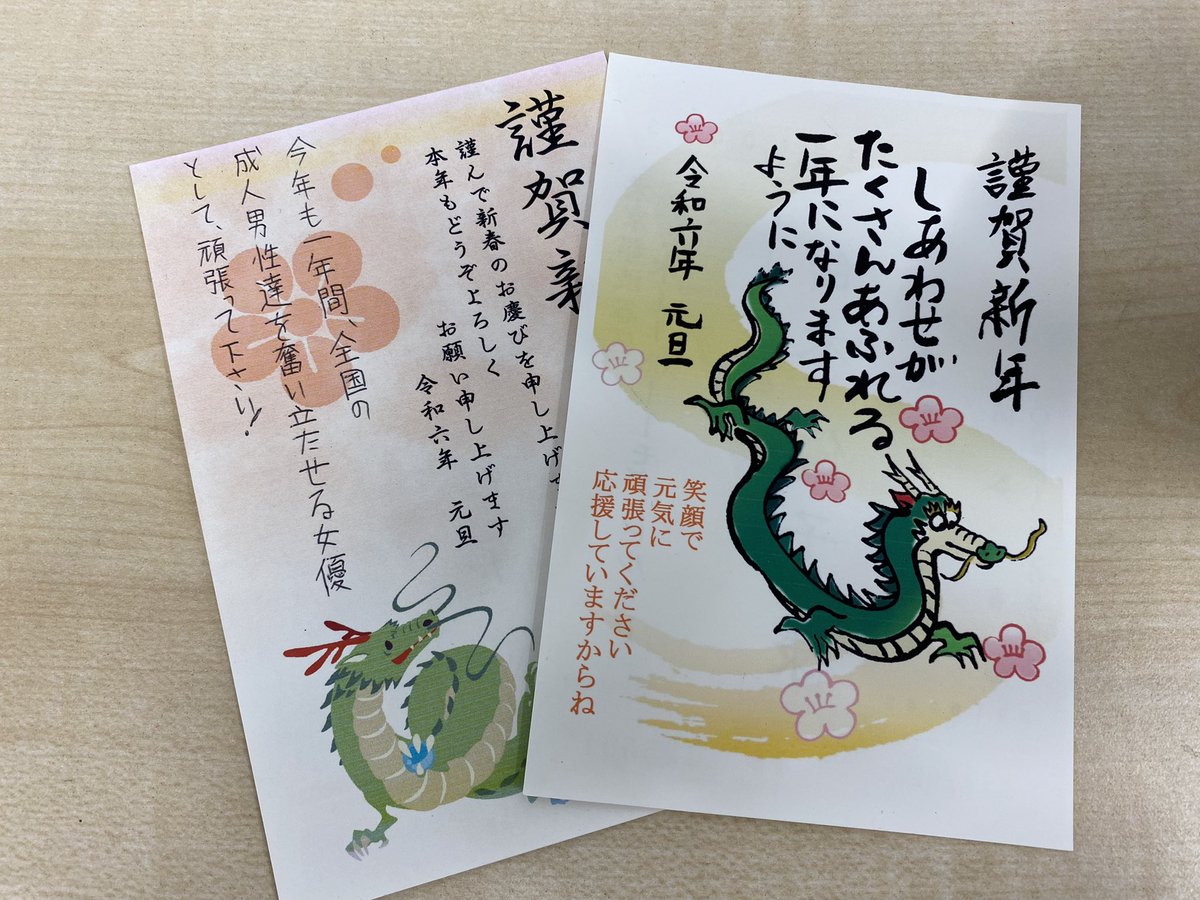 謹賀新年
しあわせが
たくさんあふれる
一年になります
ように
令和六年 元旦
笑顔で
元気に
頑張ってください
応援していますからね
謹賀新
謹んで新春のお慶びを申し上げま
本年もどうぞよろしく
お願い申し上げます
令和六年 元旦
今年も一年間、全国の
成人男性達を奮い立たせる女優
として、頑張って下さい!